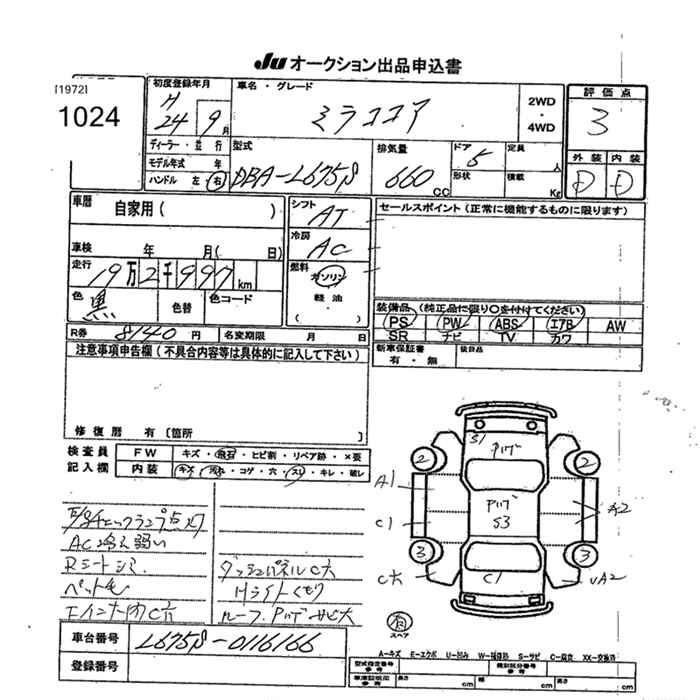 Ju オークション出品申込書
[1972]
1024
初度登録年月
H 24年 9月
車名・グレード
ミラココア
2WD
・
4WD
評価点
3
外装 内装
D D
ディーラー・並行
モデル年式 年
ハンドル 左・右
型式
DBA-L675S
排気量
660 CC
ドア
5
形状
定員
人
積載
Kg
車歴
自家用( )
車検 年 月( 日)
走行
19万2千997km
色
黒
色替
色コード
シフト
AT
冷房
AC
燃料
ガソリン
軽油
・( )
セールスポイント(正常に機能するものに限ります)
装備品(純正品に限り○を付けてください)
PS PW ABS エアB AW
SR ナビ TV カワ
R券 8140 円 名変期限 月 日
新車保証書
有・無
後日品
注意事項申告欄(不具合内容等は具体的に記入して下さい)
修復歴 有〔箇所
検査員
記入欄
FW キズ・飛石・ヒビ割・リペア跡・×要
内装 キズ・汚れ・コゲ・穴・スレ・キレ・破レ
E/Gチェックランプ点灯
AC冷え弱い
Rシートシミ
ペット毛
ダッシュパネルC大
Hライトくもり
ルーフ、Pハゲ サビ大
S1
Pハゲ
Pハゲ
S3
C1
2
2
3
3
A1
C1
C大
A2
UA2
スペア
車台番号 L675S-0116166
登録番号
A-キズ E-エクボ U-凹み W-補修跡 S-サビ C-腐食 XX-交換済
型式指定番号
参考
類別区分番号
参考
車庫証明用
参考
長さ cm 幅 cm 高さ cm